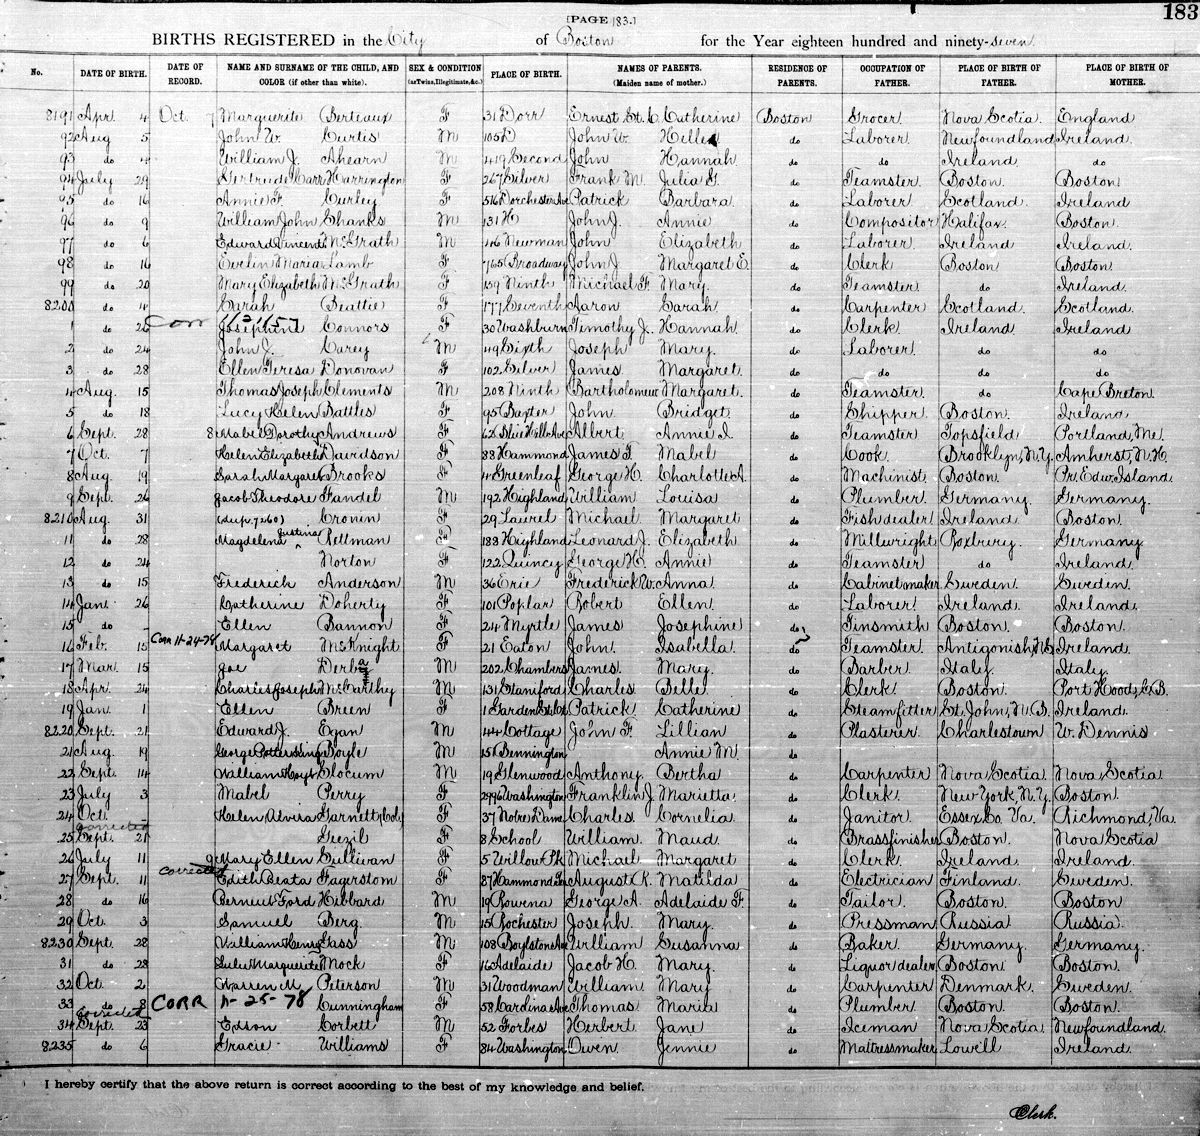 [PAGE 183.]
183
BIRTHS REGISTERED in the City of Boston for the Year eighteen hundred and ninety-seven.
No. DATE OF BIRTH. DATE OF RECORD. NAME AND SURNAME OF THE CHILD, AND COLOR (if other than white). SEX & CONDITION (as Twins, Illegitimate, &c.) PLACE OF BIRTH. NAMES OF PARENTS. (Maiden name of mother.) RESIDENCE OF PARENTS. OCCUPATION OF FATHER. PLACE OF BIRTH OF FATHER. PLACE OF BIRTH OF MOTHER.
8191 Apr. 4 Oct. 7 Marguerite Berteaux F 31 Dorr Ernest St. C. Catherine Boston Grocer Nova Scotia England
92 Aug 5 John W. Curtis M 105 D John W. Hellen do Laborer Newfoundland Ireland.
93 do 4 William J. Ahearn M 419 Second John Hannah do do Ireland do
94 July 29 Gertrude Carr Harrington F 267 Silver Frank M. Julia G. do Teamster Boston. Boston
95 do 16 Annie F. Curley F 516 Dorchester Ave Patrick Barbara do Laborer Scotland. Ireland
96 do 9 William John Shanks M 131 H John J. Annie do Compositor Halifax. Boston.
97 do 6 Edward Vincent McGrath M 46 Newman John Elizabeth do Laborer. Ireland Ireland.
98 do 16 Evelin Maria Lamb F 765 Broadway John J Margaret E. do Clerk Boston Boston.
99 do 20 Mary Elizabeth McGrath F 159 Ninth Michael F. Mary. do Teamster do Ireland.
8200 do 4 Sarah Beattie F 177 Seventh Aaron Sarah. do Carpenter Scotland. Scotland.
1 do 26 Corr Josephine Connors F 30 Washburn Timothy J. Hannah. do Clerk Ireland Ireland
2 do 24 John J. Carey M 49 Sixth Joseph Mary. do Laborer. do do
3 do 28 Ellen Teresa Donovan F 102 Silver James Margaret. do do do do
4 Aug. 15 Thomas Joseph Clements M 208 Ninth Bartholomew Margaret. do Teamster do Cape Breton.
5 do 18 Lucy Helen Battles F 95 Baxter John Bridget. do Chipper Boston. Ireland
6 Sept. 28 8 Mabel Dorothy Andrews F 62 Blue Hill Ave Albert Annie I. do Teamster Topsfield Portland, Me.
7 Oct. 7 Helen Elizabeth Davidson F 88 Hammond James F. Mabel do Cook Brooklyn, N.Y. Amherst, N.H.
8 Aug. 19 Sarah Margaret Brooks F 4 Greenleaf George H. Charlotte A. do Machinist Boston. Pr. Edw. Island.
9 Sept. 26 Jacob Theodore Fandel M 192 Highland William Louisa do Plumber. Germany. Germany.
8210 Aug. 31 (dup. 7260) Cronin F 29 Laurel Michael Margaret do Fish dealer Ireland Boston.
11 do 28 Magdelena Justina Rettman F 188 Highland Leonard J. Elizabeth do Millwright Roxbury. Germany
12 do 24 Norton F 122 Quincy George H. Annie do Teamster do Ireland.
13 do 15 Frederich Anderson M 36 Erie Frederick W. Anna. do Cabinet maker Sweden Sweden.
14 Jan. 26 Katherine Doherty F 101 Poplar Robert Ellen. do Laborer Ireland. Ireland.
15 do - Ellen Bannon F 24 Myrtle James Josephine do Tinsmith Boston. Boston.
16 Feb. 15 Corr 11-24-78 Margaret McKnight F 21 Eaton John. Isabella do Teamster. Antigonish, N.S. Ireland.
17 Mar. 15 Joe Derba M 202 Chambers James. Mary. do Barber Italy. Italy.
18 Apr. 24 Charles Joseph McCarthy M 131 Staniford Charles Belle. do Clerk Boston. Port Hood, C.B.
19 Jan. 1 Ellen Breen F 1 Garden St. Ct. Patrick Catherine do Steamfitter St. John, N.B. Ireland.
8220 Sept. 21 Edward J. Egan M 44 Cottage John F. Lillian do Plasterer Charlestown W. Dennis
21 Aug. 19 George Boyle M 151 Bennington Annie M. do
22 Sept. 14 William Hoyt Slocum M 19 Glenwood Anthony. Bertha do Carpenter Nova Scotia. Nova Scotia
23 July 3 Mabel Perry F 2796 Washington Franklin J. Marietta. do Clerk. New York, N.Y. Boston.
24 Oct. - Helen Alvira Garnett (Col.) F 37 Notre Dame Charles. Cornelia do Janitor. Essex Co. Va. Richmond, Va.
corrected
25 Sept. 21 Geezil F 8 School William. Maud. do Brassfinisher Boston. Nova Scotia
26 July 11 9 Mary Ellen Sullivan F 5 Willow Pk. Michael Margaret do Clerk. Ireland. Ireland.
27 Sept. 11 corrected Edith Beata Fagerstom F 87 Hammond August R. Matilda do Electrician Finland. Sweden.
28 do 16 Ford Hibbard M 19 Rowena George A. Adelaide F. do Tailor. Boston. Boston
29 Oct. 3 Samuel Berg. M 15 Rochester Joseph. Mary. do Pressman Russia Russia.
8230 Sept. 28 William Henry Gass M 108 Boylston Ave William Susanna do Baker Germany. Germany.
31 do 28 Lulu Marguerite Mock F 16 Adelaide Jacob H. Mary. do Liquor dealer Boston Boston.
32 Oct. 2 Warren M. Peterson M 31 Woodman William Mary do Carpenter Denmark. Sweden.
33 do 8 CORR 11-25-78 Cunningham F 58 Thomas Maria do Plumber Boston. Boston.
corrected
34 Sept. 23 Edson Corbett M 52 Forbes Herbert Jane do Iceman Nova Scotia Newfoundland.
8235 do 6 Gracie Williams F 84 Washington Owen. Jennie do Mattressmaker Lowell Ireland.
I hereby certify that the above return is correct according to the best of my knowledge and belief.
Clerk.